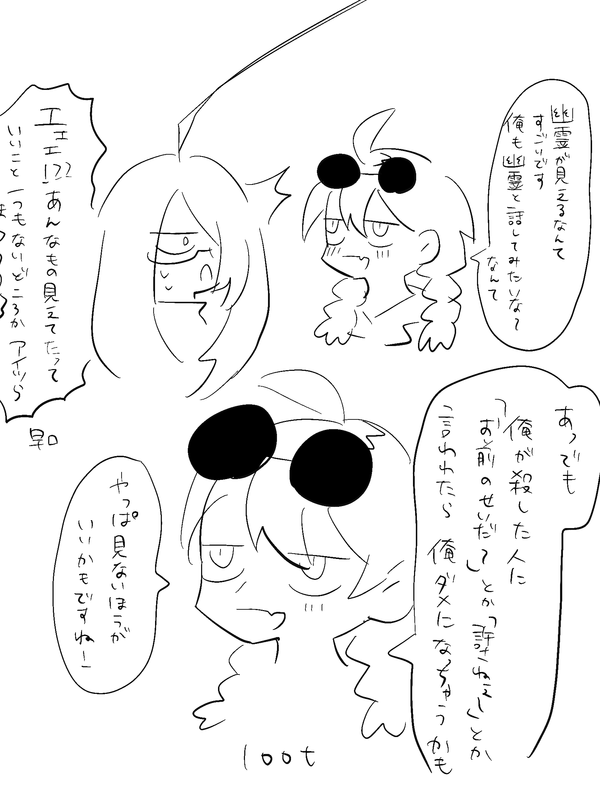 幽霊が見えるなんて
すごいです
俺も幽霊と話してみたいなて
なんて
エェェ!??あんなもの見えてたって
いいこと一つもないどころかアイツら
早口
あっでも
俺が殺した人に
「お前のせいだ」とか「許さねぇ」とか
言われたら俺ダメになっちゃうかも
やっぱ見ないほうが
いいかもですねー
loot